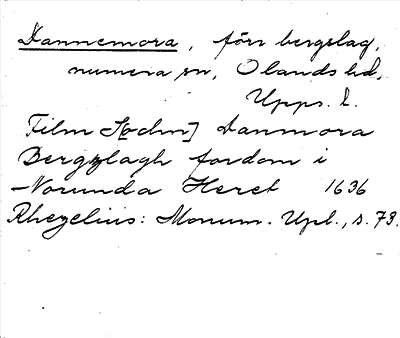 Dannemora, förr bergslag,
numera sn, Olands hd,
Upps. l.
Film S[ochn] Danmora
Bergzlagh fordom i
Norunda Heret 1636
Rhezelius: Monum. Upl., s. 73.